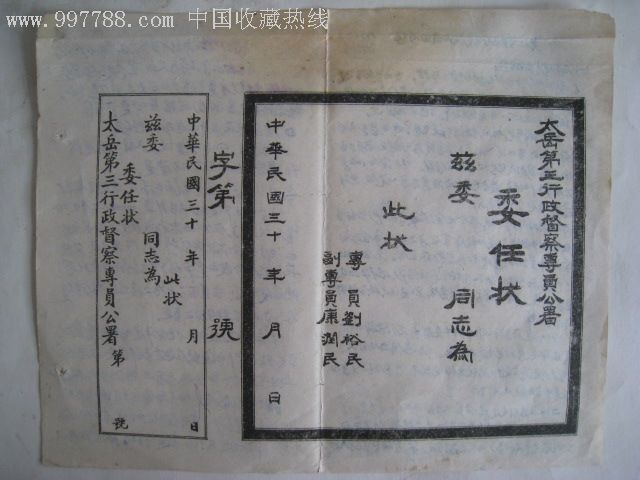 www.997788.com 中国收藏热线
太岳第三行政督察專員公署
委任状
兹委 同志為
此状
專員劉裕民
副專員康潤民
中華民國三十年 月 日
字第 號
中華民國三十年 月 日
兹委 同志為 此状
委任状
太岳第三行政督察專員公署第 號